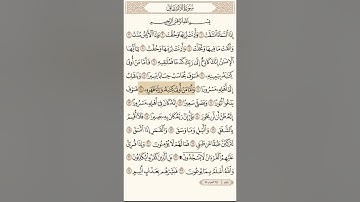 سُورَةُ الانشِقَاقِ
بِسْمِ اللَّهِ الرَّحْمَٰنِ الرَّحِيمِ
إِذَا السَّمَاءُ انشَقَّتْ ١ وَأَذِنَتْ لِرَبِّهَا وَحُقَّتْ ٢ وَإِذَا الْأَرْضُ مُدَّتْ ٣
وَأَلْقَتْ مَا فِيهَا وَتَخَلَّتْ ٤ وَأَذِنَتْ لِرَبِّهَا وَحُقَّتْ ٥ يَٰأَيُّهَا
الْإِنسَٰنُ إِنَّكَ كَادِحٌ إِلَىٰ رَبِّكَ كَدْحًا فَمُلَٰقِيهِ ٦ فَأَمَّا مَنْ أُوتِيَ
كِتَٰبَهُ بِيَمِينِهِ ٧ فَسَوْفَ يُحَاسَبُ حِسَابًا يَسِيرًا ٨ وَيَنقَلِبُ
إِلَىٰ أَهْلِهِ مَسْرُورًا ٩ وَأَمَّا مَنْ أُوتِيَ كِتَٰبَهُ وَرَاءَ ظَهْرِهِ ١٠ فَسَوْفَ
يَدْعُوا ثُبُورًا ١١ وَيَصْلَىٰ سَعِيرًا ١٢ إِنَّهُ كَانَ فِي أَهْلِهِ مَسْرُورًا ١٣
إِنَّهُ ظَنَّ أَن لَّن يَحُورَ ١٤ بَلَىٰ إِنَّ رَبَّهُ كَانَ بِهِ بَصِيرًا ١٥ فَلَا أُقْسِمُ
بِالشَّفَقِ ١٦ وَاللَّيْلِ وَمَا وَسَقَ ١٧ وَالْقَمَرِ إِذَا اتَّسَقَ ١٨
لَتَرْكَبُنَّ طَبَقًا عَن طَبَقٍ ١٩ فَمَا لَهُمْ لَا يُؤْمِنُونَ ٢٠ وَإِذَا قُرِئَ
عَلَيْهِمُ الْقُرْءَانُ لَا يَسْجُدُونَ ۩ ٢١ بَلِ الَّذِينَ كَفَرُوا يُكَذِّبُونَ ٢٢
وَاللَّهُ أَعْلَمُ بِمَا يُوعُونَ ٢٣ فَبَشِّرْهُم بِعَذَابٍ أَلِيمٍ ٢٤